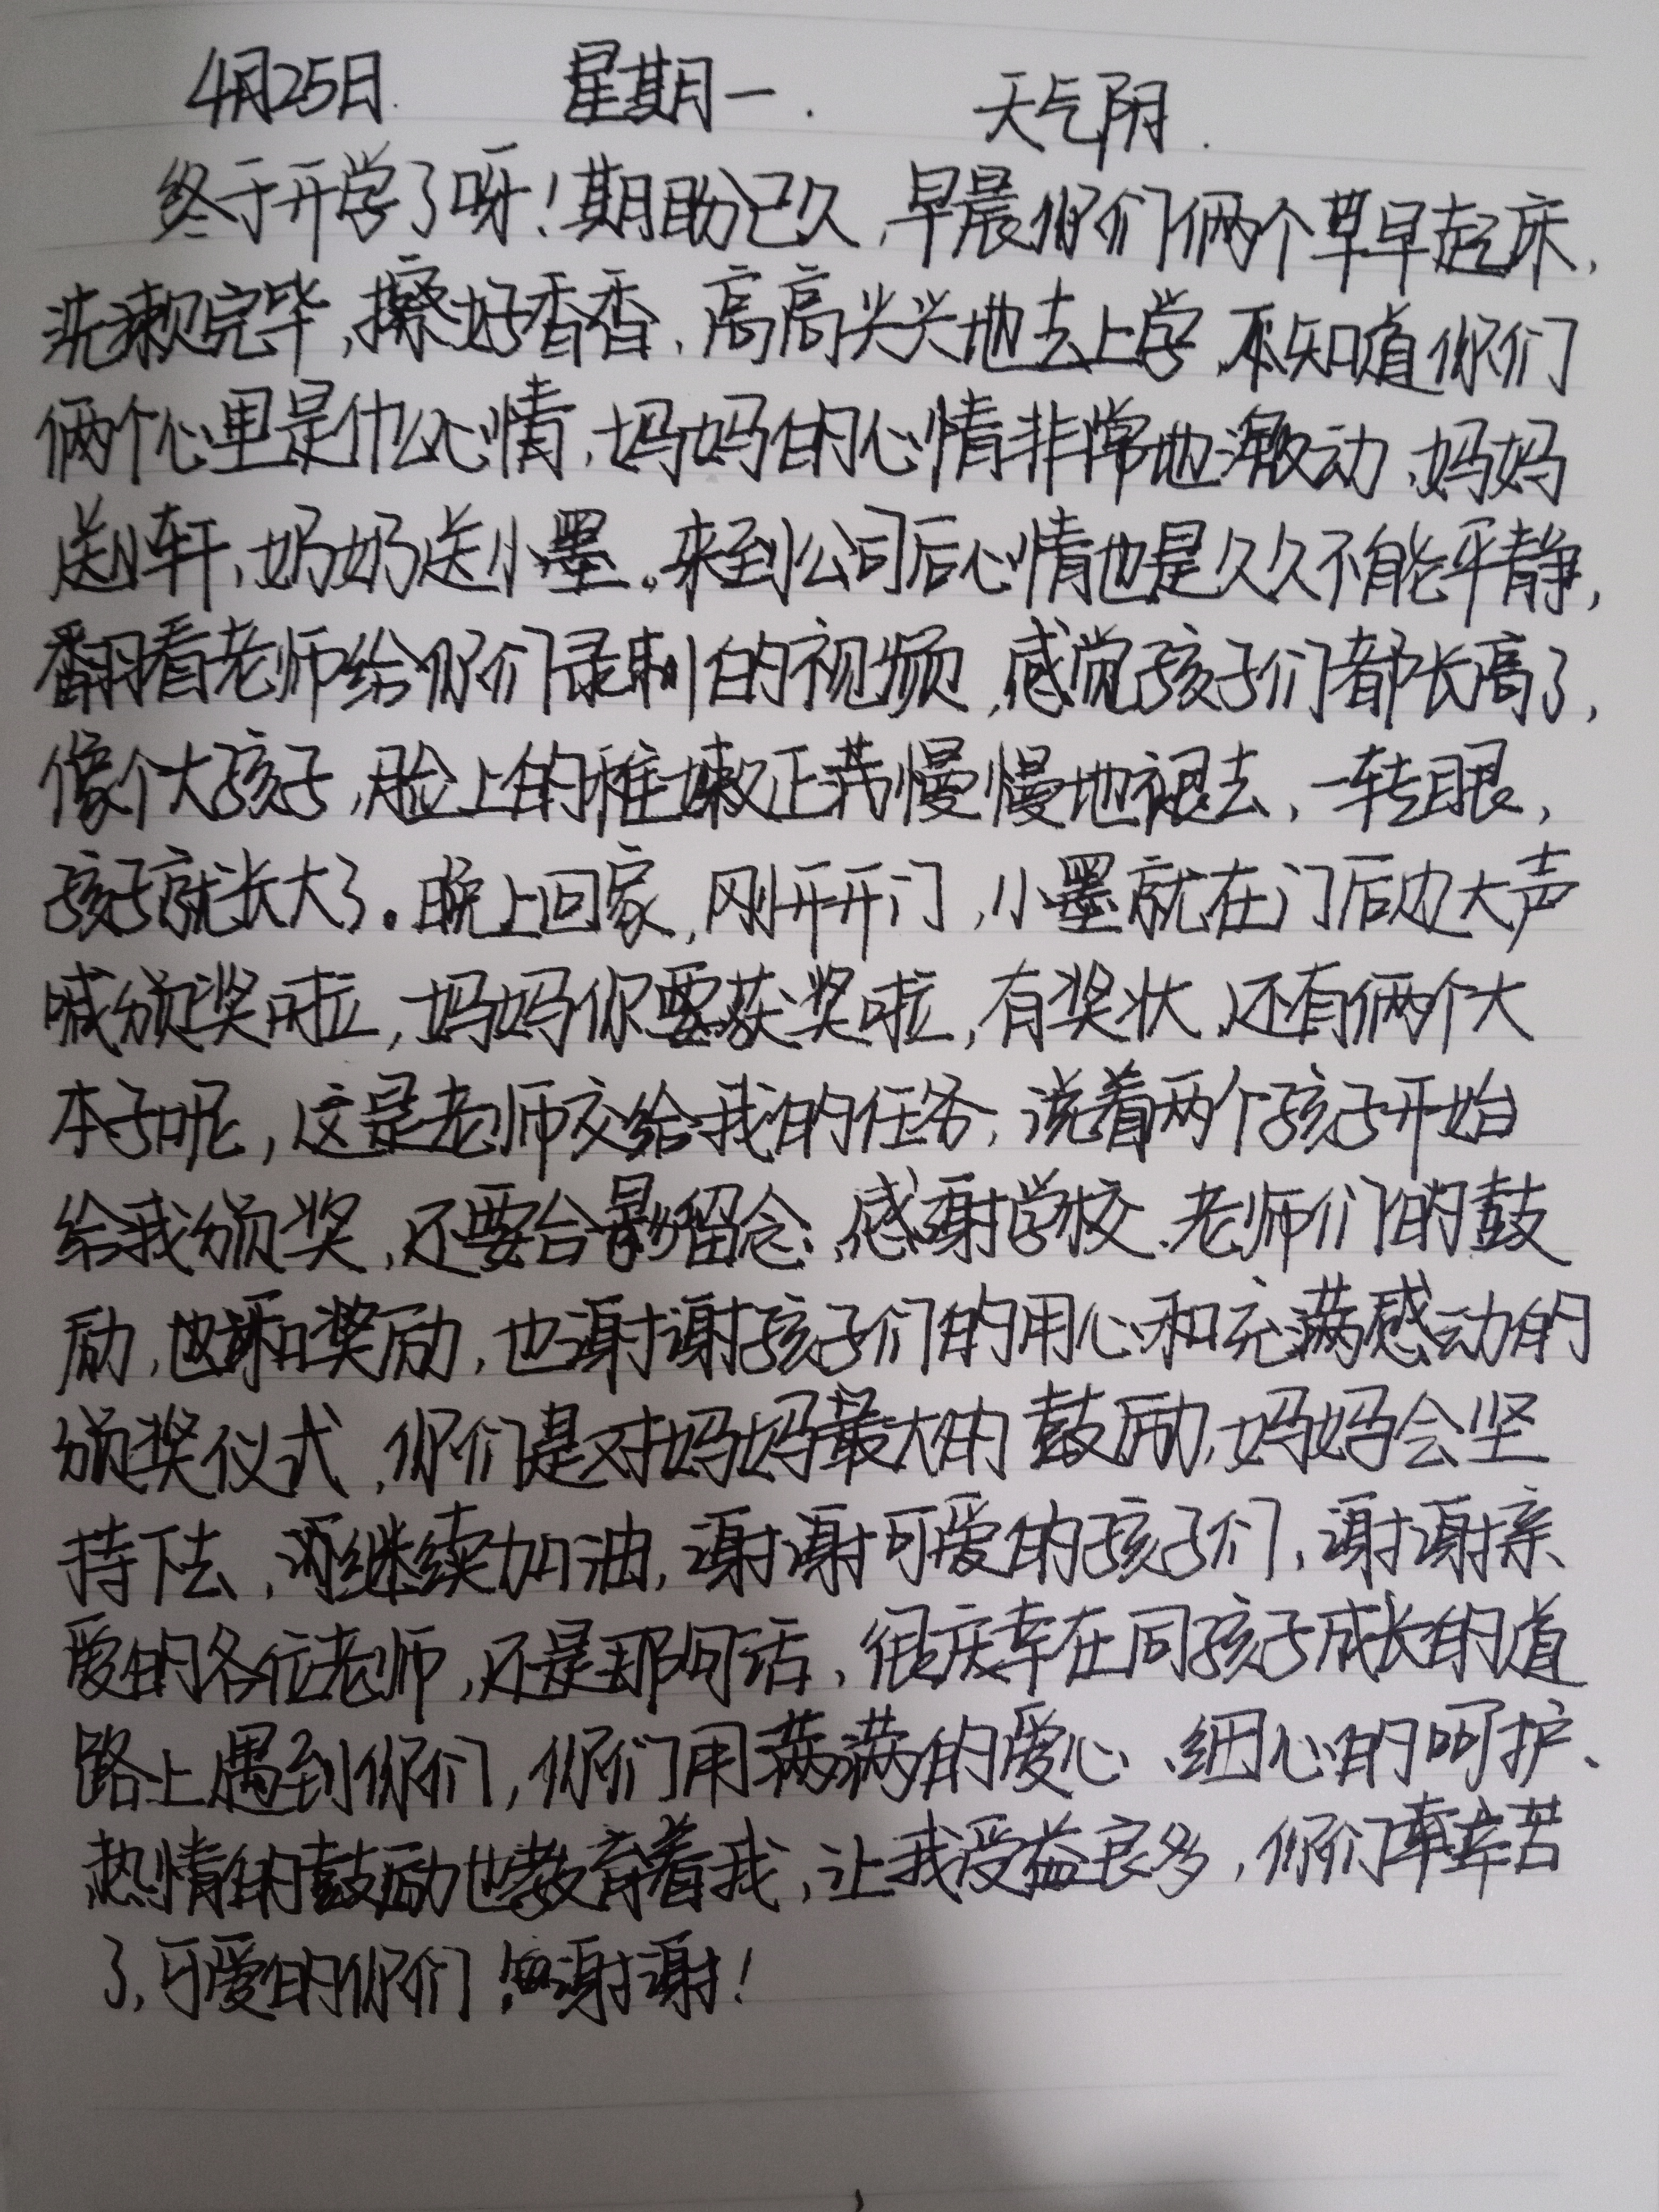 4月25日. 星期一. 天气阴.
终于开学了呀!期盼已久,早晨你们俩个早早起床,
洗漱完毕,擦好香香,高高兴兴地去上学,不知道你们
俩个心里是什么心情,妈妈的心情非常地激动,妈妈
送小轩,奶奶送小墨。来到公司后心情也是久久不能平静,
翻看老师给你们录制的视频,感觉孩子们都长高了,
像个大孩子,脸上的稚嫩正慢慢地褪去,一转眼,
孩子就长大了。晚上回家,刚开开门,小墨就在门后边大声
喊颁奖啦,妈妈你要获奖啦,有奖状,还有俩个大
本子呢,这是老师交给我的任务,说着两个孩子开始
给我颁奖,还要合影留念,感谢学校、老师们的鼓
励,和奖励,也谢谢孩子们的用心和充满感动的
颁奖仪式,你们是对妈妈最大的鼓励,妈妈会坚
持下去,继续加油,谢谢可爱的孩子们,谢谢亲
爱的各位老师,还是那句话,很庆幸在同孩子成长的道
路上遇到你们,你们用满满的爱心、细心的呵护、
热情的鼓励也教育着我,让我受益良多,你们辛苦
了,可爱的你们!谢谢!